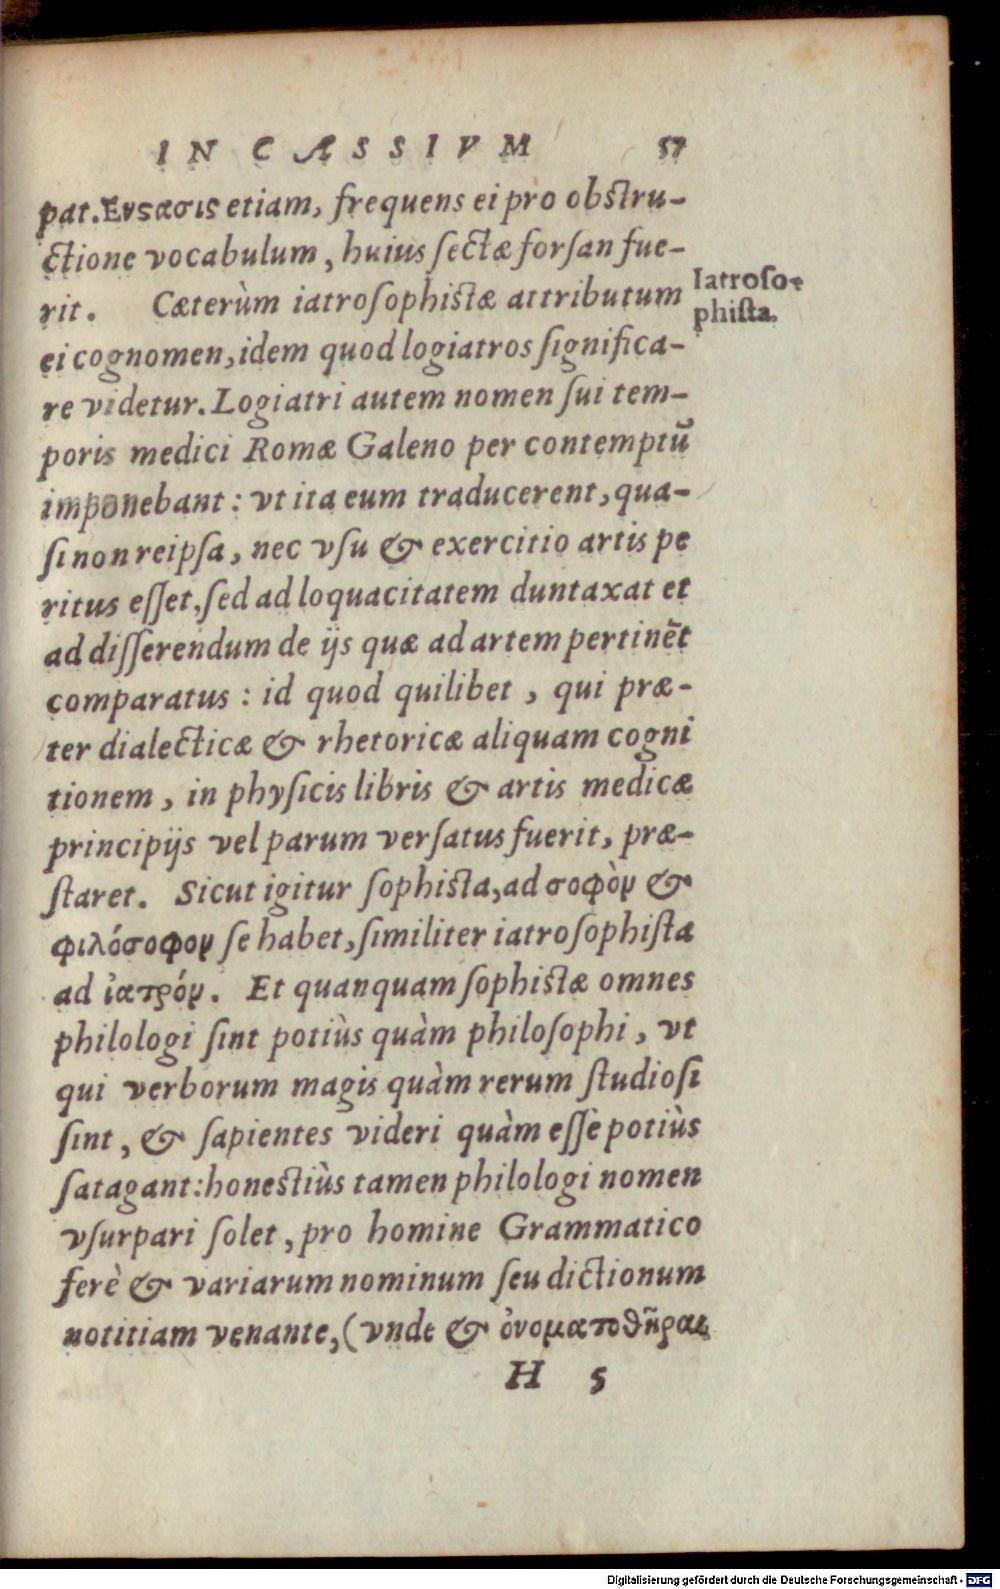 IN CASSIVM 57
pat. Ενςασις etiam, frequens ei pro obstru-
ctione vocabulum, huius sectæ forsan fue-
rit. Cæterùm iatrosophistæ attributum
Iatroso-
phista.
ei cognomen, idem quod logiatros significa-
re videtur. Logiatri autem nomen sui tem-
poris medici Romæ Galeno per contemptũ
imponebant: vt ita eum traducerent, qua-
si non reipsa, nec vsu & exercitio artis pe
ritus esset, sed ad loquacitatem duntaxat et
ad disserendum de ijs quæ ad artem pertinẽt
comparatus: id quod quilibet, qui præ-
ter dialecticæ & rhetoricæ aliquam cogni
tionem, in physicis libris & artis medicæ
principijs vel parum versatus fuerit, præ-
staret. Sicut igitur sophista, ad σοφὸν &
φιλόσοφον se habet, similiter iatrosophista
ad ἰατρόν. Et quanquam sophistæ omnes
philologi sint potiùs quàm philosophi, vt
qui verborum magis quàm rerum studiosi
sint, & sapientes videri quàm essè potiùs
satagant: honestiùs tamen philologi nomen
vsurpari solet, pro homine Grammatico
ferè & variarum nominum seu dictionum
notitiam venante, (vnde & ὀνοματοθῆραι
H 5
Digitalisierung gefördert durch die Deutsche Forschungsgemeinschaft - DFG